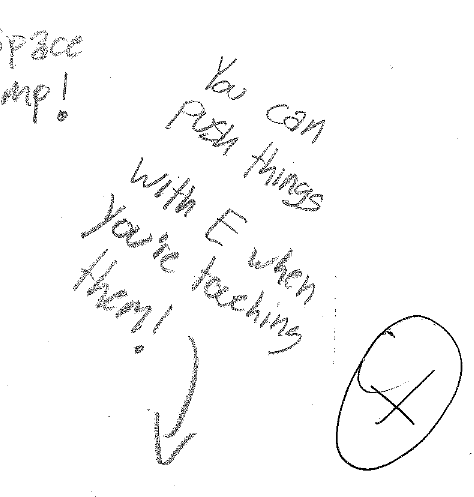 space
mp!
You can
push things
with E when
you're touching
them!